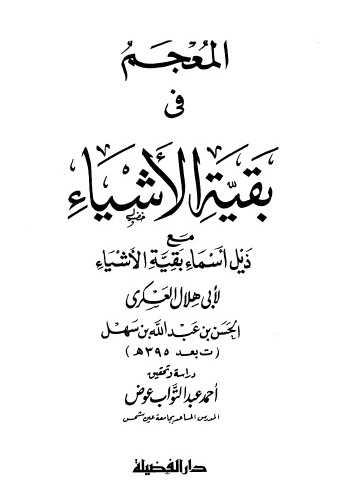 المُعْجَمُ
فى
بَقِيَّةِ الأَشْيَاءِ
مع
ذَيْل أَسْمَاءِ بَقِيَّةِ الأَشْيَاءِ
لأبى هلال العسكرى
الحسَن بن عَبْد اللّه بن سَهْل
( ت بعد ٣٩٥ هـ )
دراسة وتحقيق
أحمد عبد التواب عوض
المدرس المساعد بجامعة عين شمس
دار الفضيلة